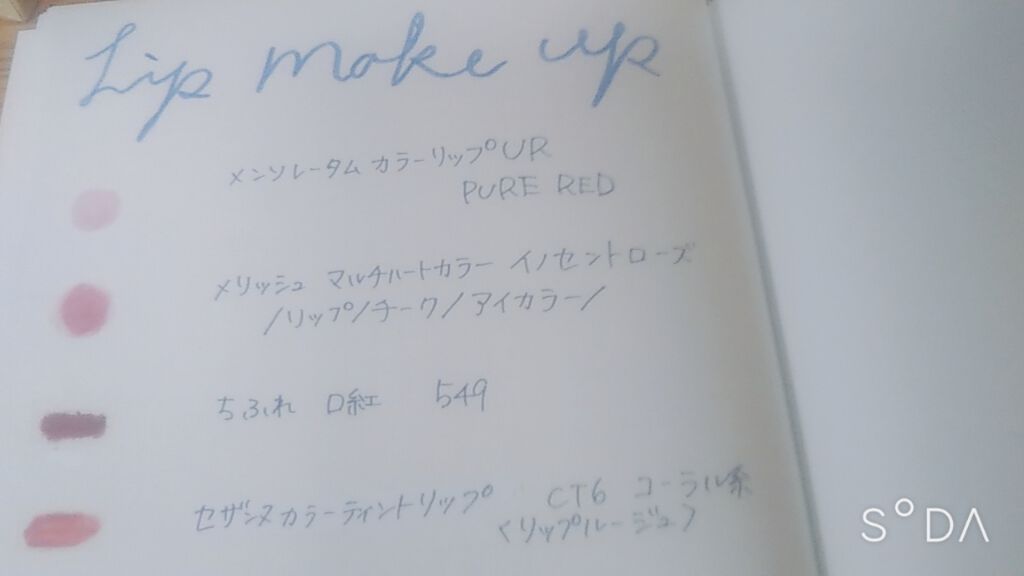 Lip make up
メンソレータム カラーリップUR
PURE RED
メリッシュ マルチハートカラー イノセントローズ
/リップ/チーク/アイカラー/
ちふれ 口紅 549
セザンヌカラーティントリップ CT6 コーラル系
<リップルージュ>
SODA